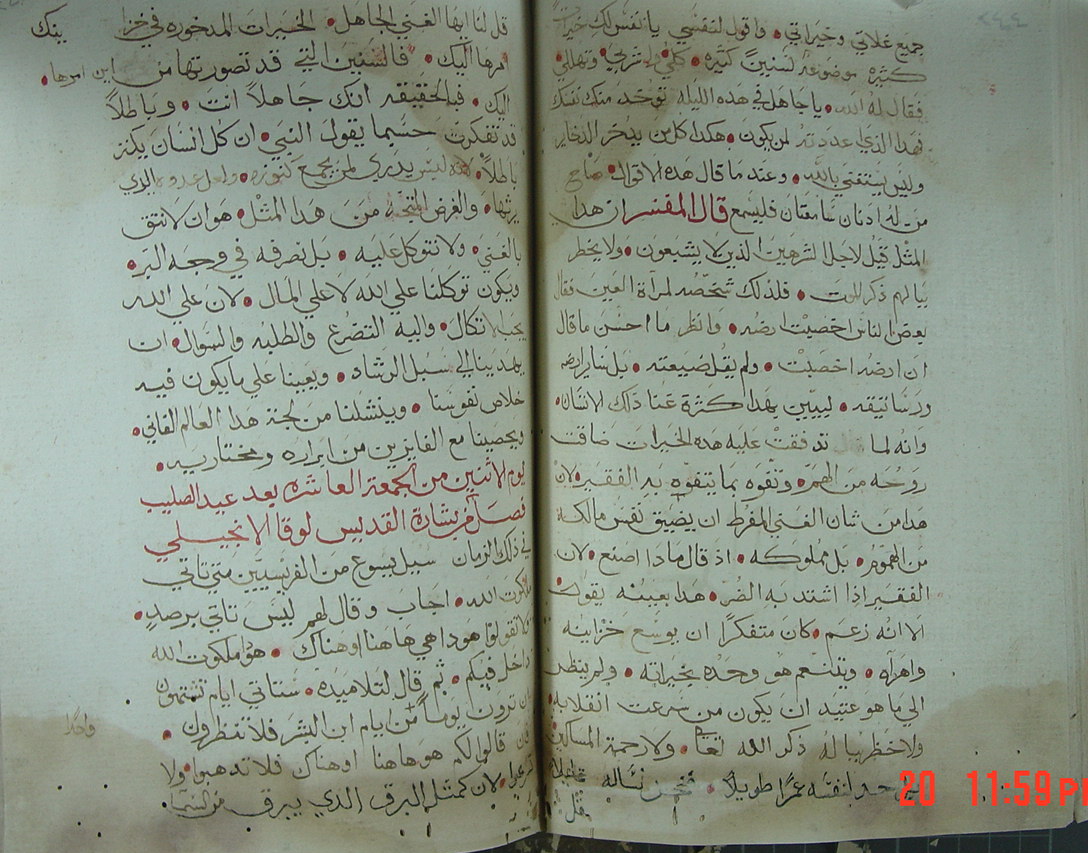 جميع غلاتي وخيراتي • واقول لنفسي يا نفس لك خيرات
كثيرة موضوعه لسنين كثيره • كلي
فقال له الله • يا جاهل في هذه الليله توخد منك نفسك
فهذا الذي عددته لمن يكون • هكذا كل من يدخر الدخاير
وليس يستغني بالله • وعند ما قال هذه الاقوال • صاح
من له اذنان سامعتان فليسمع قال المفسر ان هذا
المثل قيل لاجل الشرهين الذين لا يشبعون • ولا يخطر
ببالهم ذكر الموت • فلذلك شخصه لمرآة العين فقال
بعض الناس اخصبت ارضه • وانظر ما احسن ما قال
ان ارضه اخصبت • ولم يقل ضيعته • بل ساير ارضه
ورساتيقه • ليبين بهذا كثرة غنا ذلك الانسان •
وانه لما تدفقت عليه هذه الخيرات ضاقت
روحه من الهم • وتفوه بما يتفوه به الفقير • لان
هذا من شان الغني المفرط ان يضيق نفس مالكه
من الهموم • بل مملوكه • اذ قال ماذا اصنع • لان
الفقير اذا اشتد به الضر • هذا بعينه يقول •
الا انه زعم • كان متفكرا ان يوسع خزاينه
واهراه • ويتنعم هو وحده بخيراته • ولم ينظر
الي ما هو عتيد ان يكون من سرعت انقلابه
ولا خطر بباله ذكر الله • ولا رحمة المساكين
نفسه عمرا طويلا • فنحن نساله
قل
قل لنا ايها الغني الجاهل • الخيرات المدخوره في خزاينك
امرها اليك • فالسنين التي قد تصورتها من اين امرها •
اليك • فبالحقيقه انك جاهلا انت • وباطلا
قد تفكرت حسبما يقول النبي • ان كل انسان يكنز
باطلا • ليس يدري لمن يجمع كنوزه • ولعل عدوه الذي
يرثها • والغرض من هذا المثل • هو ان لا نثق
بالغني • ولا نتوكل عليه • بل نصرفه في وجه البر •
ويكون توكلنا علي الله لا علي المال • لان علي الله
يجب الاتكال • واليه التضرع والطلبه والسوال • ان
يهدينا الي سبل الرشاد • ويعيننا علي ما يكون فيه
خلاص نفوسنا • وينشلنا من لجة هذا العالم الفاني •
ويحصينا مع الفايزين من ابراره ومختاريه •
يوم الاثنين من الجمعة العاشره بعد عيد الصليب
فصل من بشارة القديس لوقا الانجيلي
في ذلك الزمان سيل يسوع من الفريسيين متي تاتي
ملكوت الله • اجاب وقال لهم ليس تاتي برصد •
ولا تقولوا هوذا هي هاهنا او هناك • هوذا ملكوت الله
داخل فيكم • ثم قال لتلاميذه • ستاتي ايام تشتهون
ان ترون يوما من ايام ابن البشر فلا تنظرون •
واحدا
فان قالوا لكم هوهاهنا او هناك فلا تذهبوا • ولا
تسرعوا • لان كمثل البرق الذي يبرق من السما
20 11:59 P